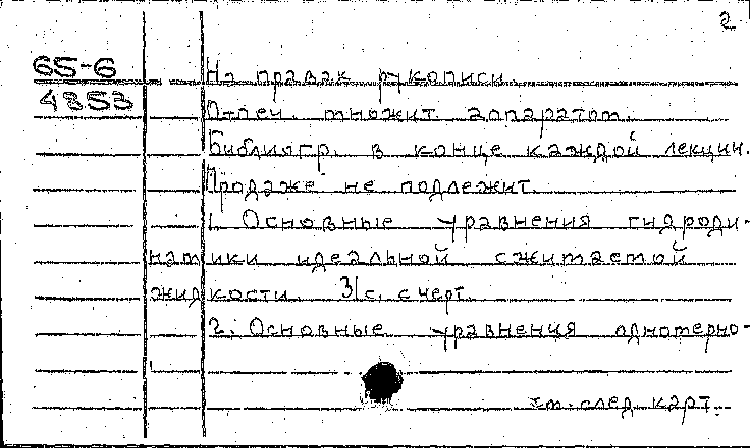 2
65-6
4853
На правах рукописи.
Отпеч. множит. аппаратом.
Библиогр. в конце каждой лекции.
Продаже не подлежит.
1. Основные уравнения гидроди-
намики идеальной сжимаемой
жидкости. 31 с. с черт.
2. Основные уравнения одномерно-
см. след. карт.